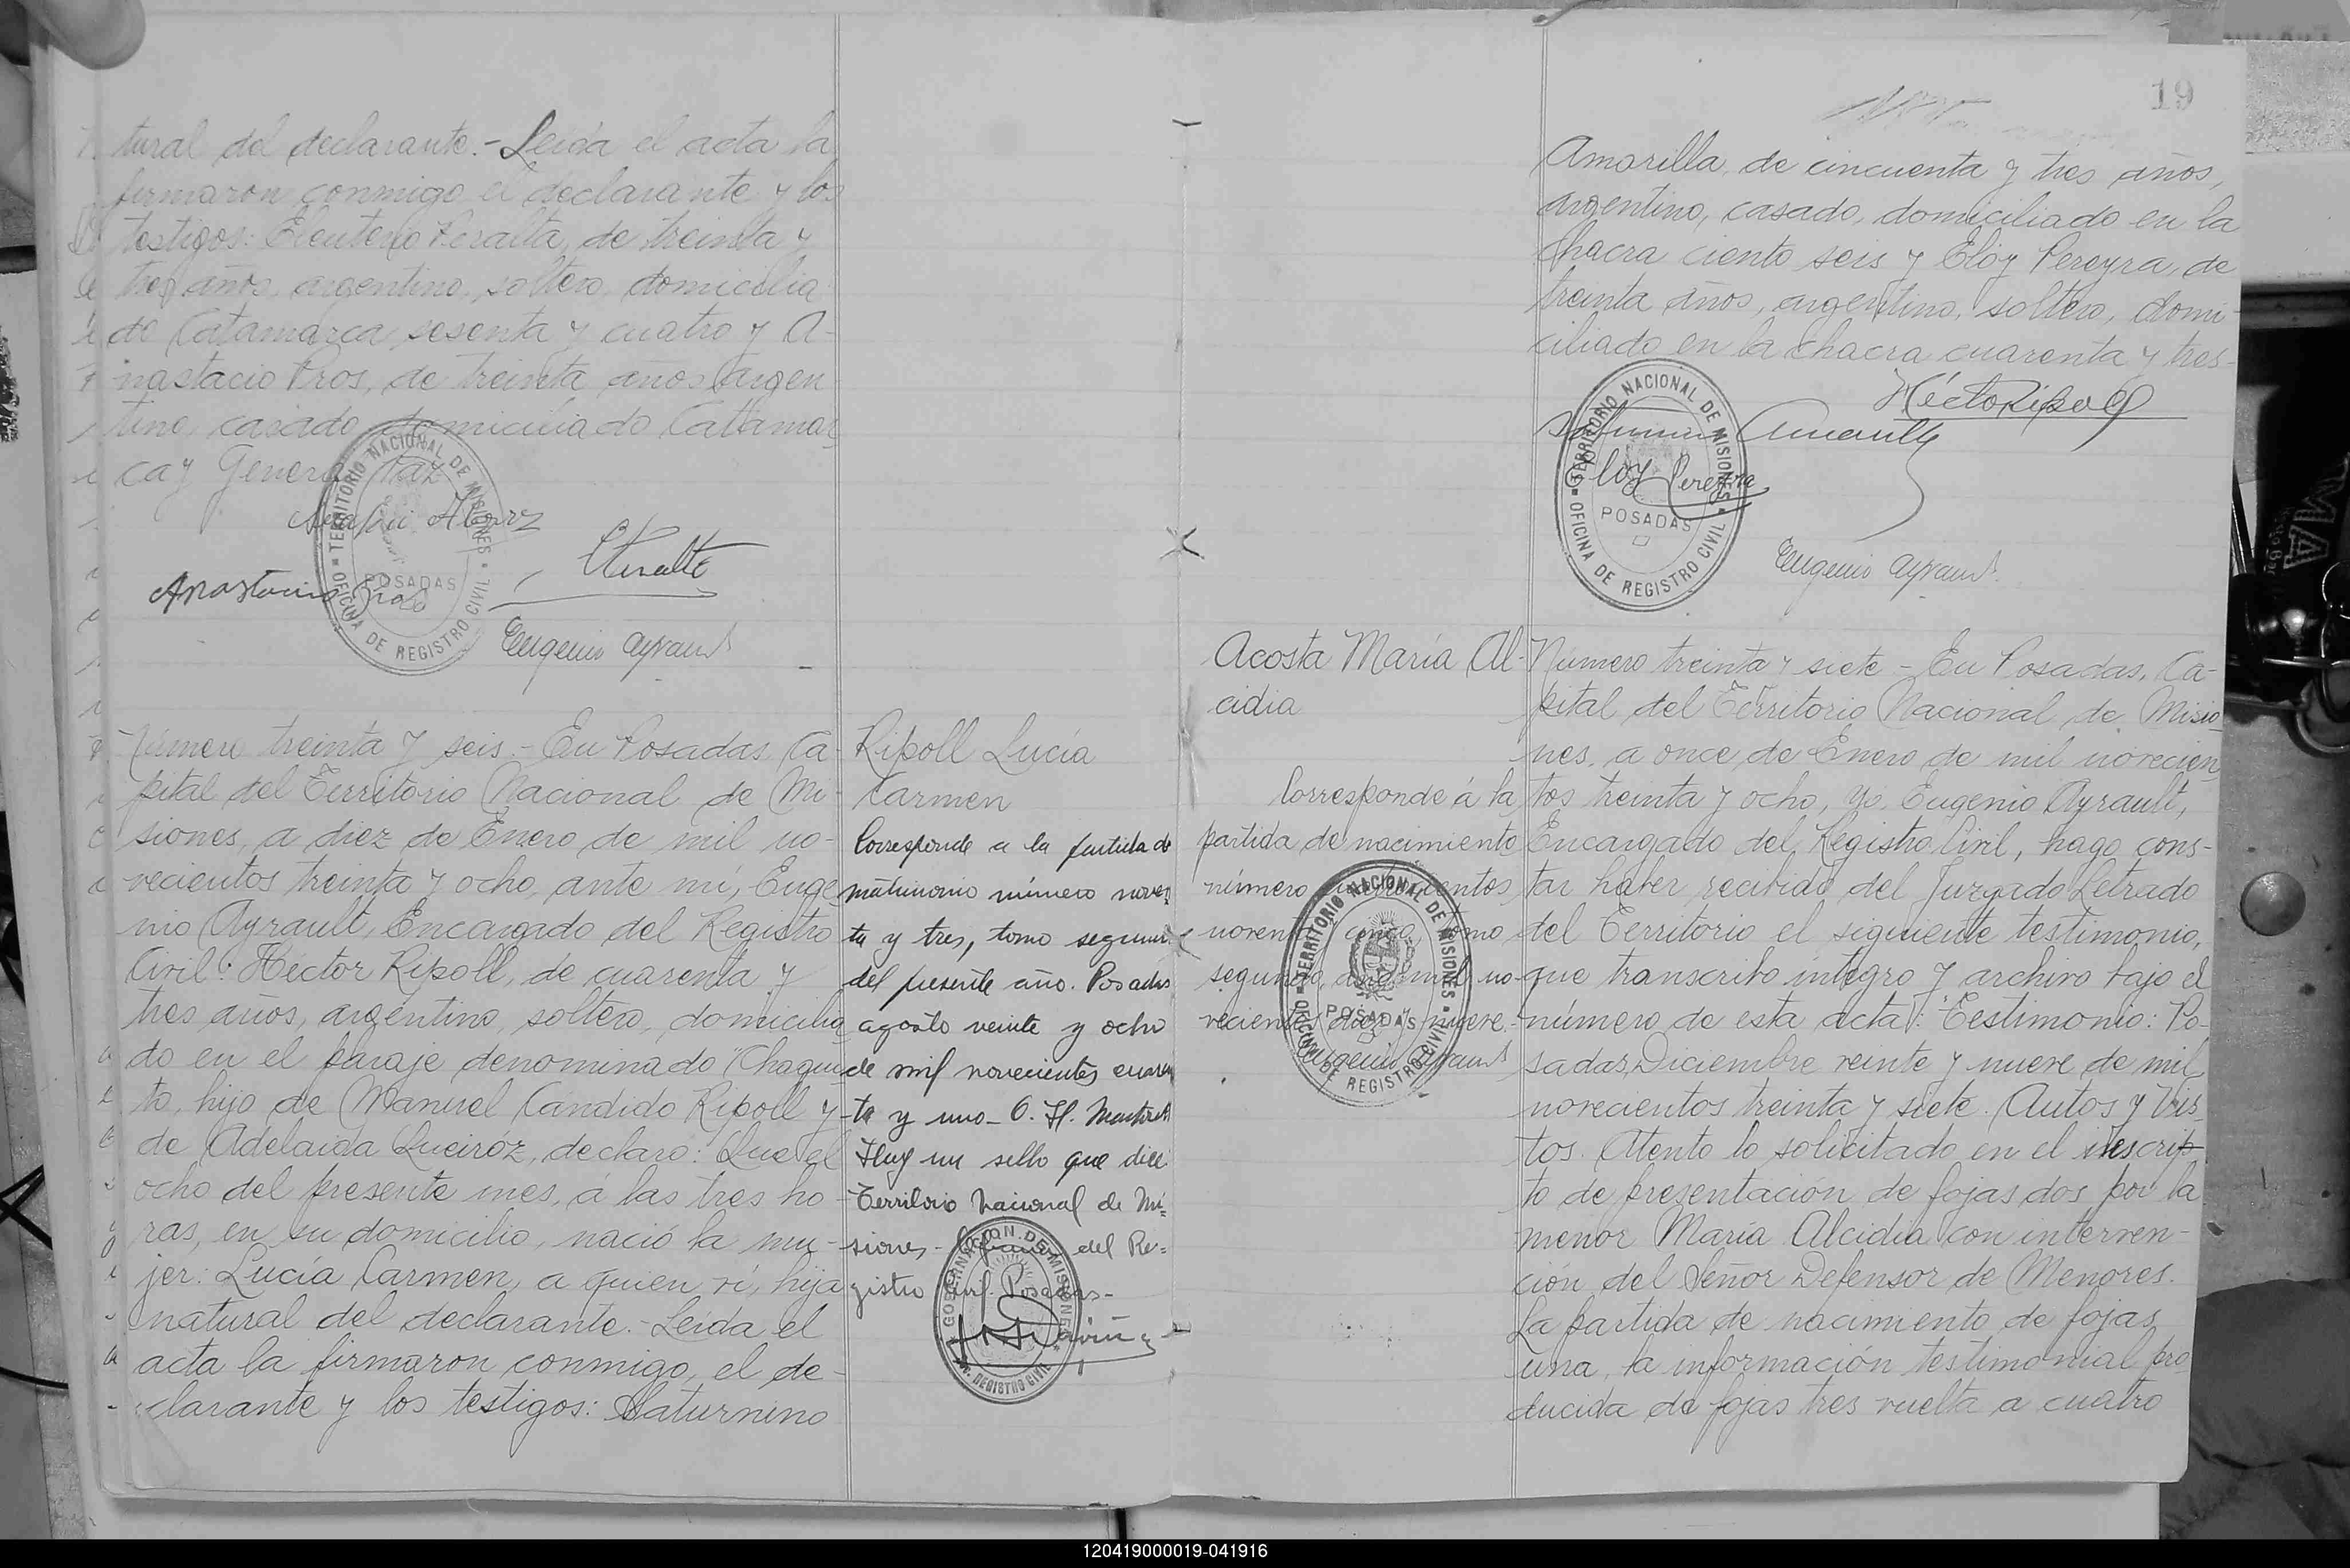 tural del declarante.- Leída el acta la
firmaron conmigo el declarante y los
testigos: Eleuterio Peralta, de treinta y
tres años, argentino, soltero, domicilia
do Catamarca sesenta y cuatro y A-
nastacio Pros, de treinta años, argen
tino, casado, domiciliado Catamar
ca y General Paz
Anastacio
EPeralta
Eugenio Ayrault
TERRITORIO NACIONAL DE MISIONES
POSADAS
OFICINA DE REGISTRO CIVIL
Número treinta y seis.- En Posadas, Ca-
pital del Territorio Nacional de Mi-
siones, a diez de Enero de mil no-
vecientos treinta y ocho, ante mí, Euge
nio Ayrault, Encargado del Registro
Civil: Héctor Ripoll, de cuarenta y
tres años, argentino, soltero, domicilia
do en el paraje denominado "Chaqui
to, hijo de Manuel Candido Ripoll y
de Adelaida Queiroz, declaró: Que el
ocho del presente mes, á las tres ho-
ras, en su domicilio, nació la mu-
jer: Lucía Carmen, a quien ví, hija
natural del declarante.- Leída el
acta la firmaron conmigo, el de-
clarante y los testigos: Saturnino
Ripoll Lucía
Carmen
Corresponde a la partida de
matrimonio número noven
ta y tres, tomo segundo
del presente año. Posadas
agosto veinte y ocho
de mil novecientos cuaren
ta y uno- O. H.
Hay un sello que dice
Territorio Nacional de Mi=
siones- Oficina del Re=
gistro Civil. Posadas-
GOBERNACION DE MISIONES
REGISTRO CIVIL
19
Amarilla, de cincuenta y tres años,
argentino, casado, domiciliado en la
chacra ciento seis y Elóy Pereyra, de
treinta años, argentino, soltero, domi-
ciliado en la chacra cuarenta y tres-
Héctor Ripoll
Saturnino Amarilla
Eloy Pereyra
Eugenio Ayrault
TERRITORIO NACIONAL DE MISIONES
POSADAS
OFICINA DE REGISTRO CIVIL
Acosta María Al-
cidia
Corresponde á la
partida de nacimiento
número cuatrocientos
noventa y cinco, tomo
segundo, año mil no-
vecientos diez y nueve.-
Eugenio Ayrault
TERRITORIO NACIONAL DE MISIONES
POSADAS
OFICINA DE REGISTRO CIVIL
Número treinta y siete - En Posadas, Ca-
pital del Territorio Nacional de Misio
nes, a once de Enero de mil novecien
tos treinta y ocho, yo, Eugenio Ayrault,
Encargado del Registro Civil, hago cons-
tar haber recibido del Juzgado Letrado
del Territorio el siguiente testimonio,
que transcribo íntegro y archivo bajo el
número de esta acta: "Testimonio: Po-
sadas, Diciembre veinte y nueve de mil
novecientos treinta y siete. Autos y Vis-
tos. Atento lo solicitado en el escrip
to de presentación de fojas dos por la
menor María Alcidia con interven-
ción del Señor Defensor de Menores.
La partida de nacimiento de fojas
una, la información testimonial pro
ducida de fojas tres vuelta a cuatro
120419000019-041916